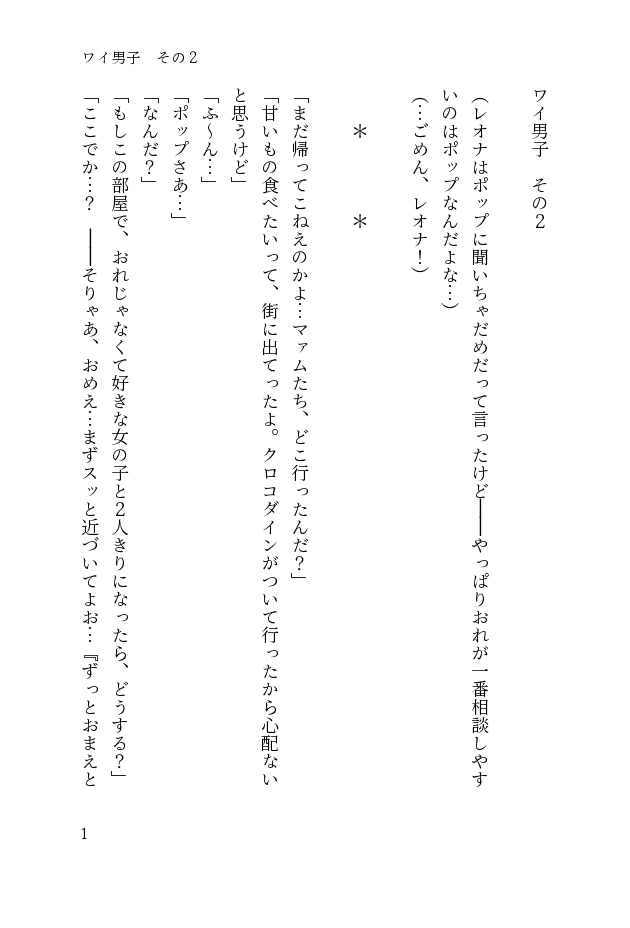 ワイ男子　その２
ワイ男子　その２
（レオナはポップに聞いちゃだめだって言ったけど――やっぱりおれが一番相談しやす
いのはポップなんだよな…）
（…ごめん、レオナ！）
＊　　　　＊
「まだ帰ってこねえのかよ…マァムたち、どこ行ったんだ？」
「甘いもの食べたいって、街に出てったよ。クロコダインがついて行ったから心配ない
と思うけど」
「ふ～ん…」
「ポップさあ…」
「なんだ？」
「もしこの部屋で、おれじゃなくて好きな女の子と２人きりになったら、どうする？」
「ここでか…？　――そりゃあ、おめえ…まずスッと近づいてよお…『ずっとおまえと
1